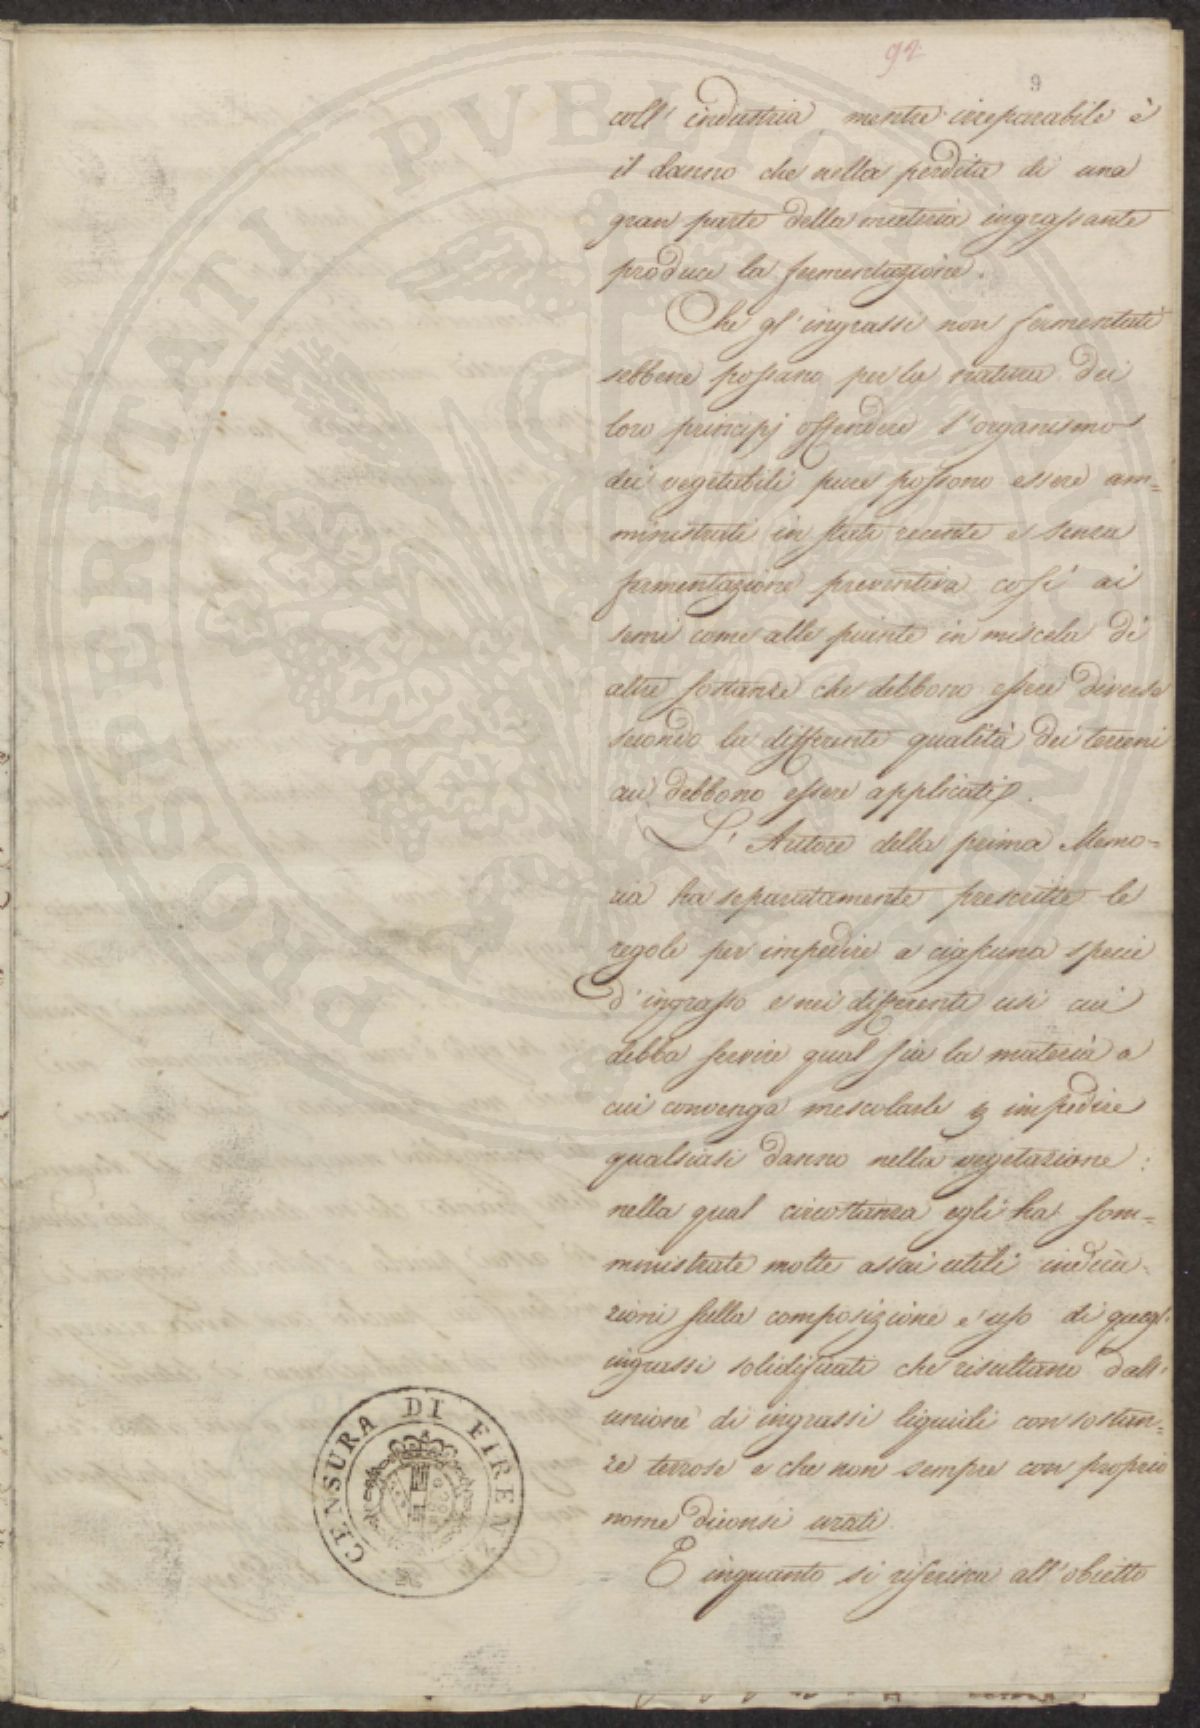 92
9
coll' industria, mentre irreparabile è
il danno che nella perdita di una
gran parte della materia ingrassante
produce la fermentazione.
Che gl'ingrassi non fermentati
sebbene possano per la natura dei
loro principj offendere l'organismo
dei vegetabili pure possono essere am=
ministrati in stato recente e senza
fermentazione preventiva così ai
semi come alle piante in miscela di
altre sostanze che debbono essere diverse
secondo la differente qualità dei terreni
cui debbono essere applicati.
L'Autore della prima Memo=
ria ha separatamente prescritte le
regole per impedire a ciascuna specie
d'ingrasso e nei differenti usi cui
debba servire qual sia la materia a
cui convenga mescolarle p impedire
qualsiasi danno nella vegetazione:
nella qual circostanza egli ha som=
ministrate molte assai utili indica=
zioni sulla composizione e uso di quegl'
ingrassi solidificati che risultano dall'
unione di ingrassi liquidi con sostan=
ze terrose e che non sempre con proprio
nome diconsi urati
E inquanto si riferisca all'obietto
CENSURA DI FIRENZE
PROSPERITATI PVBLICAE